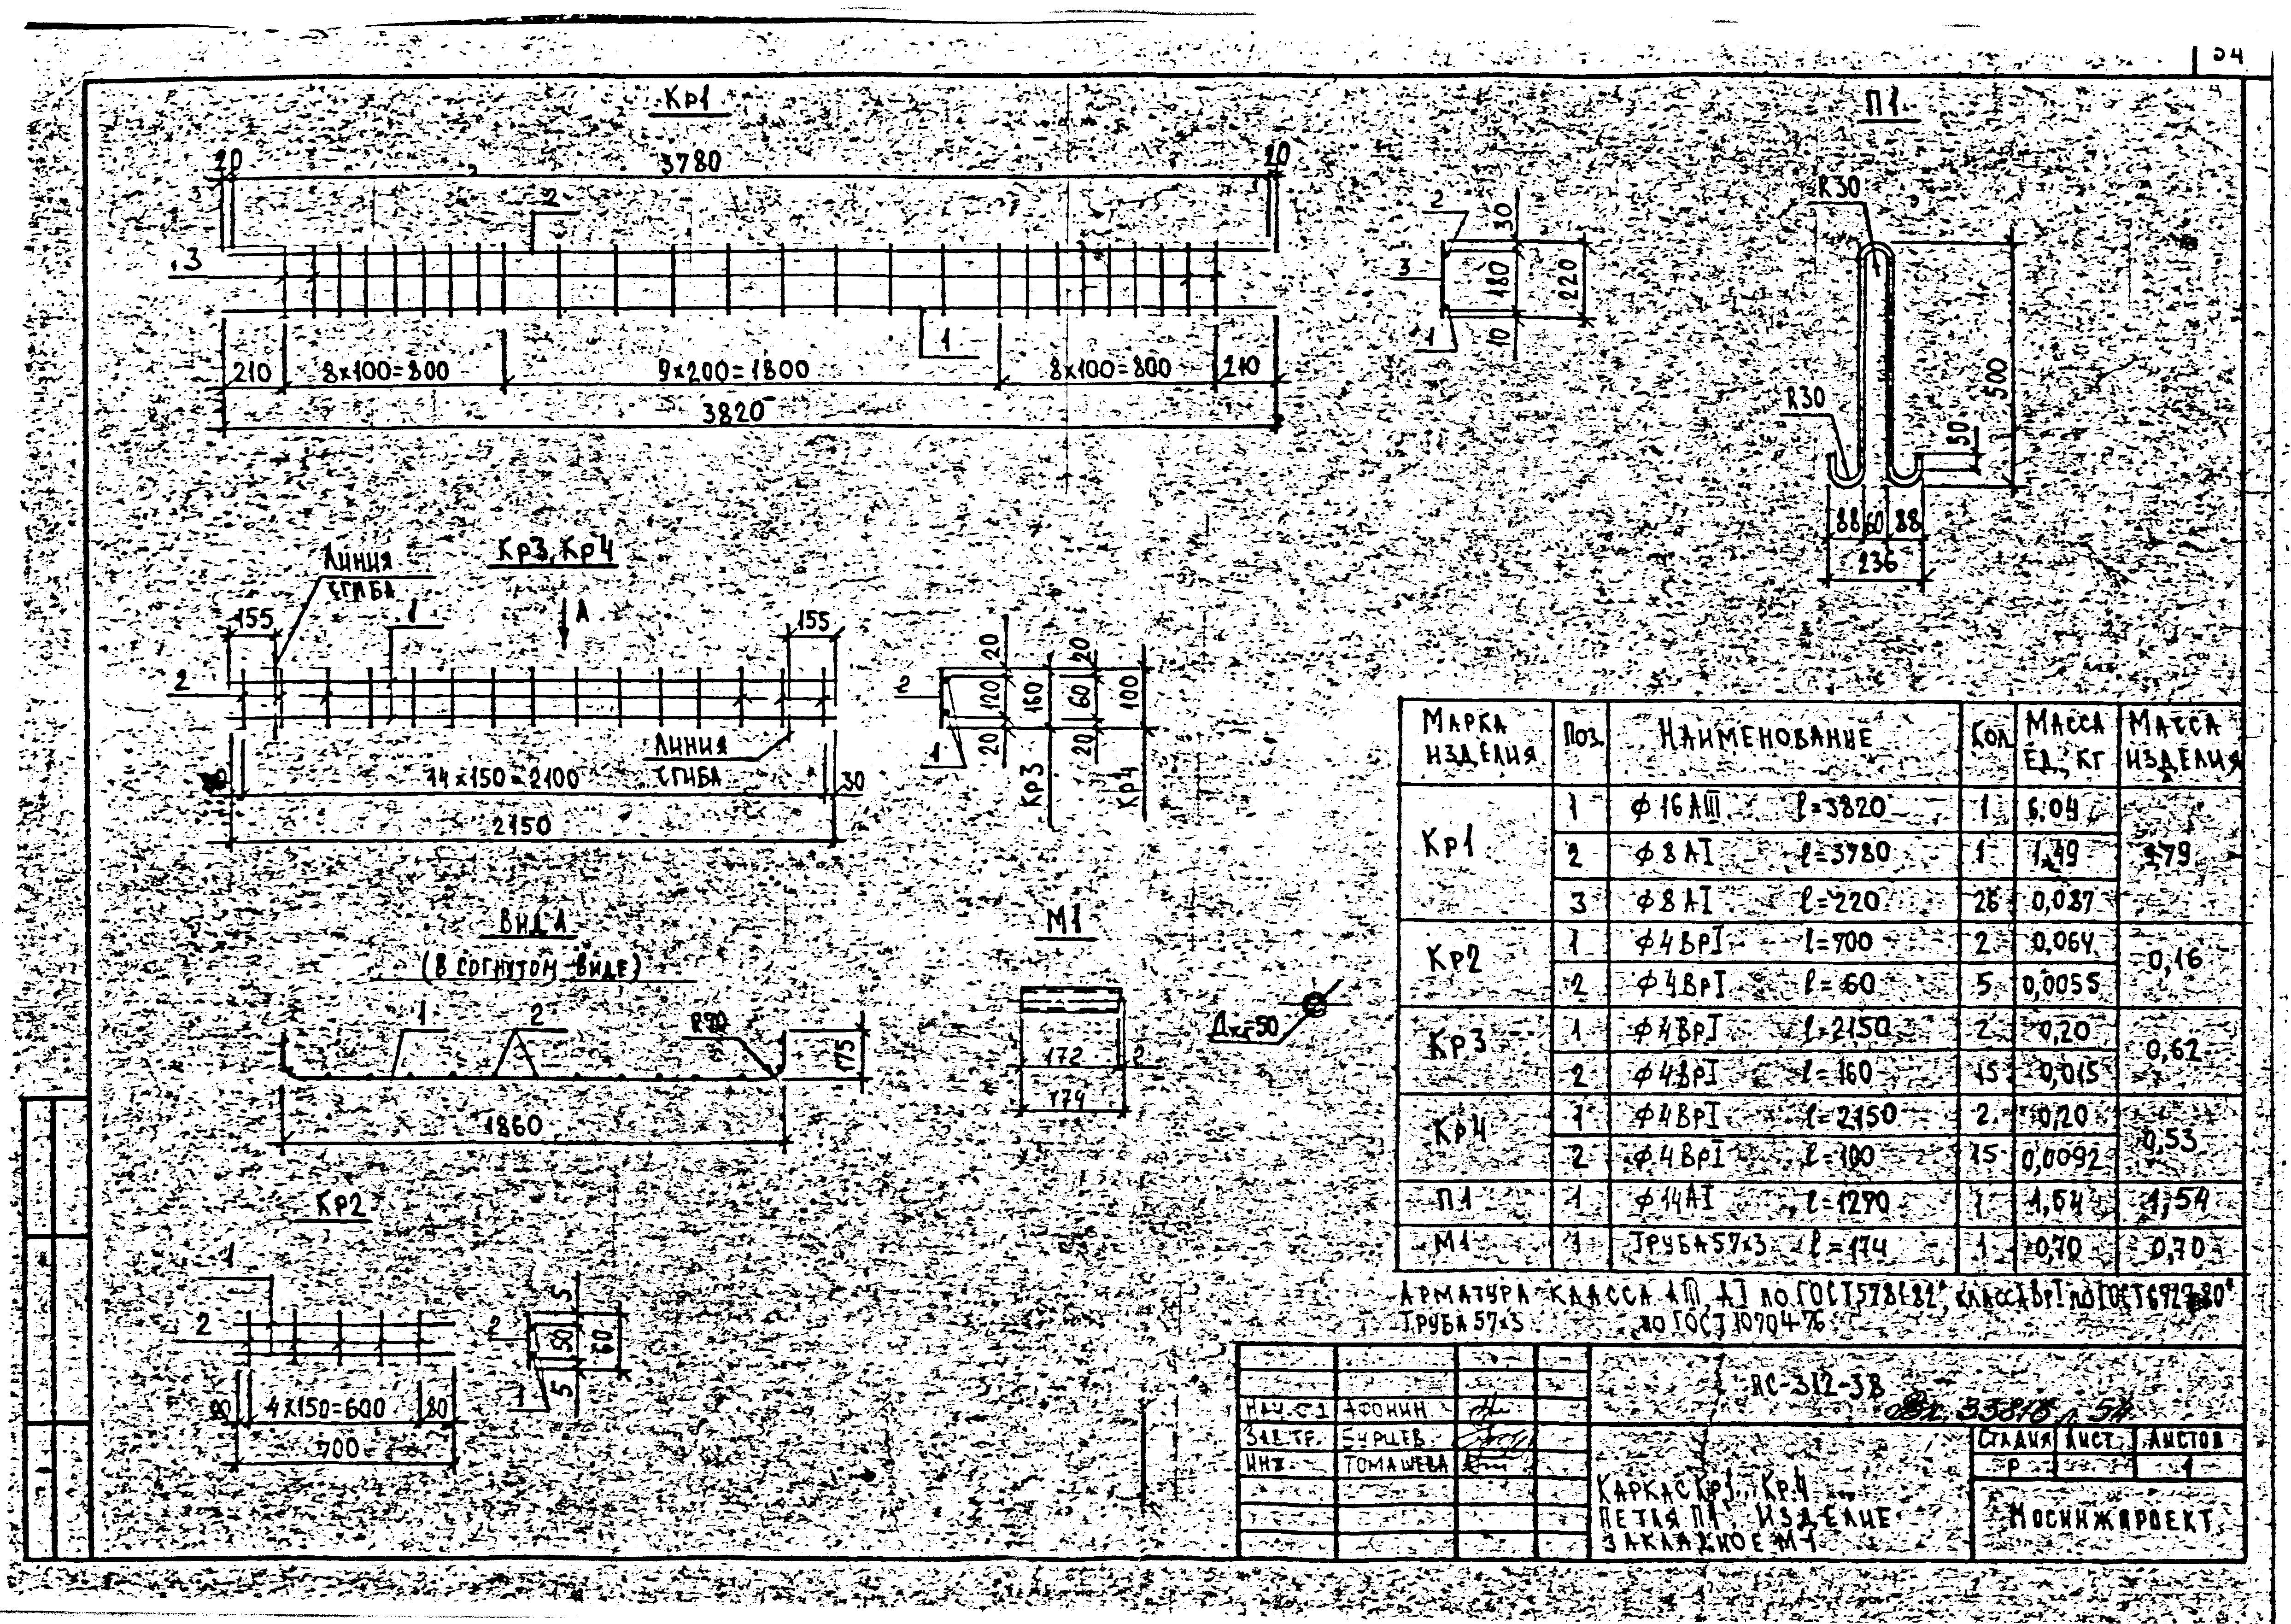 54
Кр1
П1
20
3780
20
2
3
1
210
8×100=800
9×200=1800
8×100=800
210
3820
2
3
1
30
180
10
220
R30
R30
500
30
88
60
88
236
Кр3, Кр4
Линия
сгиба
155
1
А
155
2
Линия
сгиба
14×150=2100
30
2150
2
1
20
120
20
160
20
60
20
100
Кр3
Кр4
Вид А
(в согнутом виде)
1
2
R70
175
1860
М1
172
2
174
Ду=50
Кр2
1
2
4×150=600
700
2
1
5
50
5
60
Марка изделия Поз. Наименование Кол. Масса ед., кг Масса изделия
Кр1 1 ϕ16АIII l=3820 1 6,04
2 ϕ8АI l=3780 1 1,49
3 ϕ8АI l=220 26 0,087
Кр2 1 ϕ4ВрI l=700 2 0,064 0,16
2 ϕ4ВрI l=60 5 0,0055
Кр3 1 ϕ4ВрI l=2150 2 0,20 0,62
2 ϕ4ВрI l=160 15 0,015
Кр4 1 ϕ4ВрI l=2150 2 0,20 0,53
2 ϕ4ВрI l=100 15 0,0092
П1 1 ϕ14АI l=1270 1 1,54 1,54
М1 1 Труба 57×3 l=174 1 0,70 0,70
Арматура класса АIII, АI по ГОСТ 5781-82*, класса ВрI по ГОСТ 6727-80*
Труба 57×3 по ГОСТ 10704-76
Афонин
Бурцев
Инж. Томашева
ПС-312-38
33818 л. 54
Стадия Лист Листов
Р 1
Каркас Кр1...Кр4
Петля П1. Изделие
закладное М1
Мосинжпроект